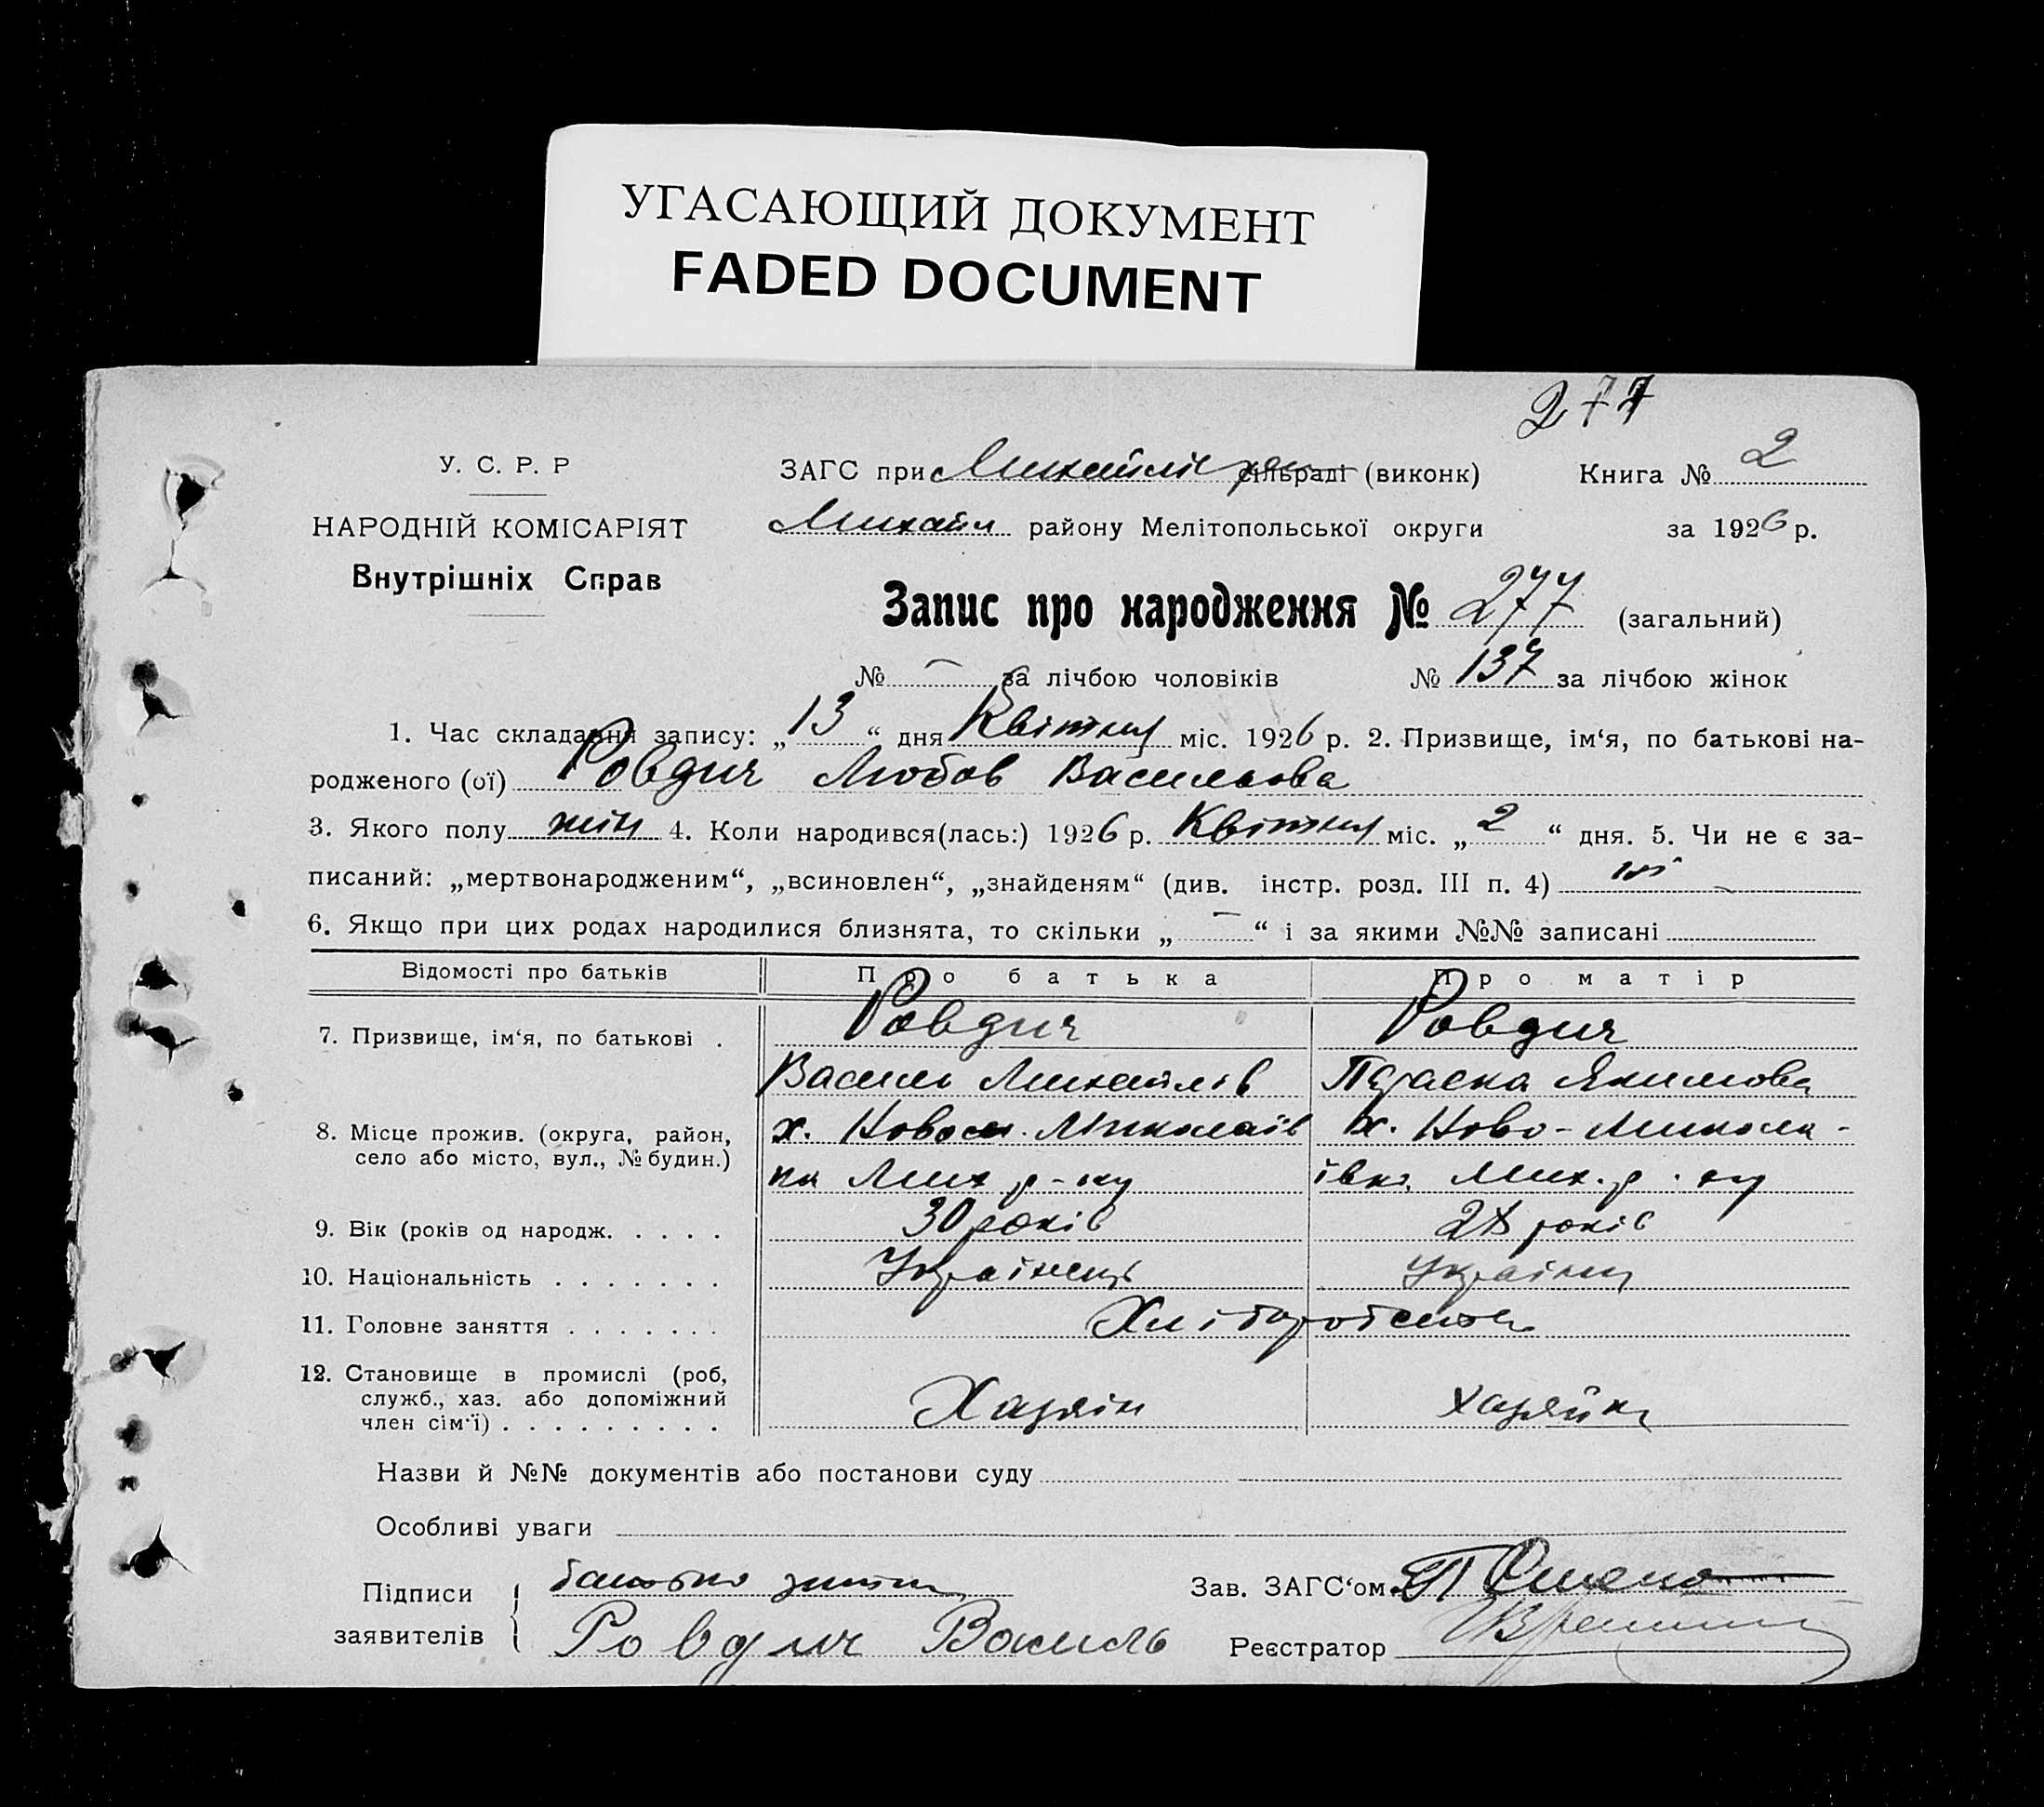 УГАСАЮЩИЙ ДОКУМЕНТ
FADED DOCUMENT
277
У. С. Р. Р
ЗАГС при Михайлів сільраді (виконк)
Книга № 2
НАРОДНІЙ КОМІСАРІЯТ
Михайл району Мелітопольської округи
за 1926 р.
Внутрішніх Справ
Запис про народження № 277 (загальний)
№ — за лічбою чоловіків № 137 за лічбою жінок
1. Час складання запису: „13“ дня Квітня міс. 1926 р. 2. Призвище, ім‘я, по батькові на-
родженого (ої) Ровдич Любов Васильова
3. Якого полу жін 4. Коли народився(лась:) 1926 р. Квітня міс. „2“ дня. 5. Чи не є за-
писаний: „мертвонародженим“, „всиновлен“, „знайденям“ (див. інстр. розд. III п. 4) ні
6. Якщо при цих родах народилися близнята, то скільки „—“ і за якими №№ записані
Відомості про батьків Про батька Про матір
7. Призвище, ім‘я, по батькові . Ровдич Ровдич
Василь Михайлів Параска Якимова
8. Місце прожив. (округа, район, х. Ново Миколаїв х. Ново-Микола-
село або місто, вул., № будин.) ка Мих р-ну ївка Мих. р-ну
9. Вік (років од народж. . . . . 30 років 28 років
10. Національність . . . . . . . Українець Українка
11. Головне заняття . . . . . . . Хліборобство
12. Становище в промислі (роб,
служб., хаз. або допоміжний Хазяін хазяйка
член сім‘ї) . . . . . . . . .
Назви й №№ документів або постанови суду
Особливі уваги
Підписи батько
Зав. ЗАГС‘ом
заявителів Ровдич Василь
Реєстратор